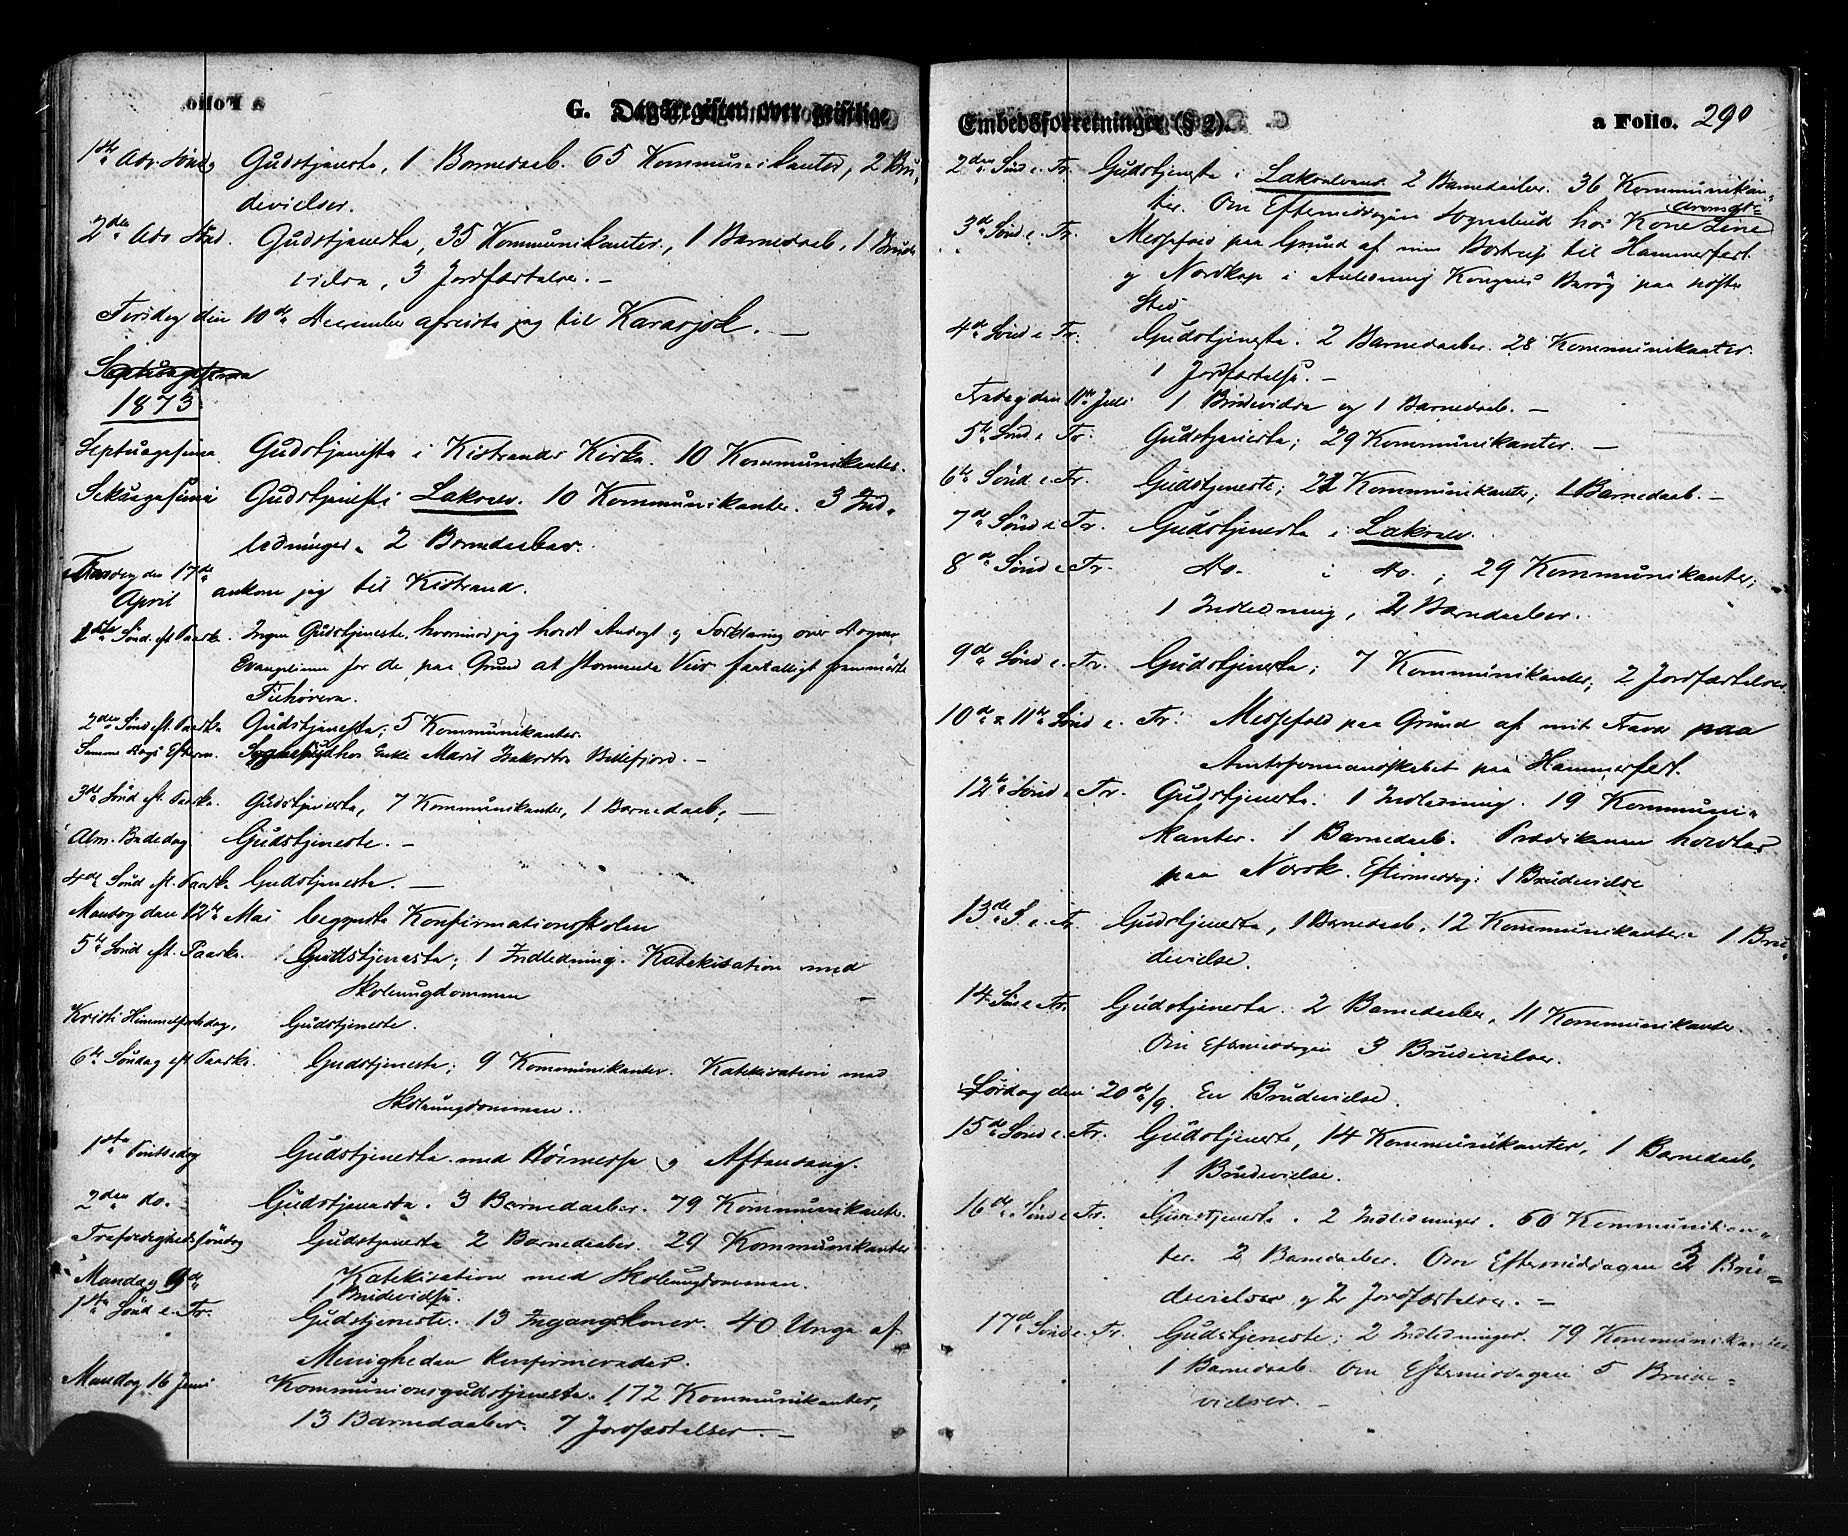 a Folio.
G. Dagsregister over geistlige
1ste Adv. Sønd. Gudstjeneste, 1 Barnedaab. 65 Kommunikanter, 2 Bru-
devielser.
2den Adv. Sønd. Gudstjeneste, 35 Kommunikanter, 1 Barnedaab, 1 Brude
vielse, 3 Jordfæstelser. —
Tirsdag den 10de December afreiste jeg til Karasjok. —
Septuagesima
1873.
Septuagesima Gudstjeneste i Kistrands Kirke. 10 Kommunikanter.
Seksagesima Gudstjeneste i Lakselv. 10 Kommunikanter. 3 Ind-
ledninger. 2 Barnedaaber.
den 17de
April ankom jeg til Kistrand.
1ste Sønd. eft. Paaske. Ingen Gudstjeneste, hvorimod jeg holdt Andagt og Forklaring over Dagens
Evangelium for de paa Grund af stormende Veir faatalligt fremmødte
Tilhørere.
2den Sønd eft. Paaske Gudstjeneste; 5 Kommunikanter.
Samme Dags Efterm. Sognebud hos Enke Marit Billefjord. —
3de Sønd eft. Paaske. Gudstjeneste, 7 Kommunikanter, 1 Barnedaab, —
Alm. Bededag Gudstjeneste. —
4de Sønd eft. Paaske Gudstjeneste. —
Mandag den 12te Mai begyndte Konfirmationsskolen
5te Sønd eft. Paaske. Gudstjeneste; 1 Indledning. Katekisation med
Skoleungdommen —
Kristi Himmelfartsdag, Gudstjeneste.
6te Søndag eft. Paaske. Gudstjeneste; 9 Kommunikanter. Katekisation med
Skoleungdommen.
1ste Pintsedag Gudstjeneste med Høimesse og Aftensang.
2den do. Gudstjeneste. 3 Barnedaaber. 79 Kommunikanter.
Trefoldighedssøndag Gudstjeneste 2 Barnedaaber. 29 Kommunikanter
Katekisation med Skoleungdommen.
Mandag 9de 1 Brudevielse.
1ste Sønd e. Tr. Gudstjeneste. 13 Ingangskoner. 40 Unge af
Menigheden konfirmeredes.
Mandag 16 Juni Kommunionsgudstjeneste. 172 Kommunikanter,
13 Barnedaaber. 7 Jordfæstelser. —
Embedsforretninger (§ 2).
a Folio. 290
2den Sønd e. Tr. Gudstjeneste i Lakselvens 2 Barnedaaber. 36 Kommunikan-
ter. Om Eftermiddagen Sognebud hos Kone Line
3de Sønd e. Tr. Messefald paa Grund af min Bortreise til Hammerfest
og Nordkap i Anledning Kongens Besøg paa nøste
Sted
4de Sønd e. Tr. Gudstjeneste. 2 Barnedaaber. 28 Kommunikanter.
1 Jordfæstelse. —
Fredag den 11te Juli 1 Brudevielse og 1 Barnedaab. —
5te Sønd e. Tr. Gudstjeneste; 29 Kommunikanter. —
6te Sønd. e. Tr. Gudstjeneste; Kommunikanter; 1 Barnedaab. —
7de Sønd e. Tr. Gudstjeneste i Lakselv.
8de Sønd e Tr. Do. i Do.; 29 Kommunikanter;
1 Indledning, 2 Barnedaaber.
9de Sønd e. Tr. Gudstjeneste; 7 Kommunikanter; 2 Jordfæstelser
10de & 11te Sønd e. Tr. Messefald paa Grund af mit Fravær paa
Amtsformandskabet paa Hammerfest.
12te Sønd e. Tr. Gudstjeneste. 1 Indledning. 19 Kommuni-
kanter. 1 Barnedaab. Prædikenen holdtes
paa Norsk. Eftermiddag: 1 Brudevielse
13de S. e. Tr. Gudstjeneste, 1 Barnedaab, 12 Kommunikanter. 1 Bru-
devielse.
14 Sønd e. Tr. Gudstjeneste. 2 Barnedaaber, 11 Kommunikanter.
Om Eftermiddagen 3 Brudevielser.
Lørdag den 20de/9. En Brudevielse.
15de Sønd e. Tr. Gudstjeneste, 14 Kommunikanter, 1 Barnedaab,
1 Brudevielse.
16de Sønd e. Tr. Gudstjeneste. 2 Indledninger. 60 Kommunikan-
ter. 2 Barnedaaber. Om Eftermiddagen 3 Bru-
devielser og 2 Jordfæstelser. —
17de Sønd e. Tr. Gudstjeneste; 2 Indledninger. 79 Kommunikanter.
1 Barnedaab. Om Eftermiddagen 5 Brude-
vielser. —